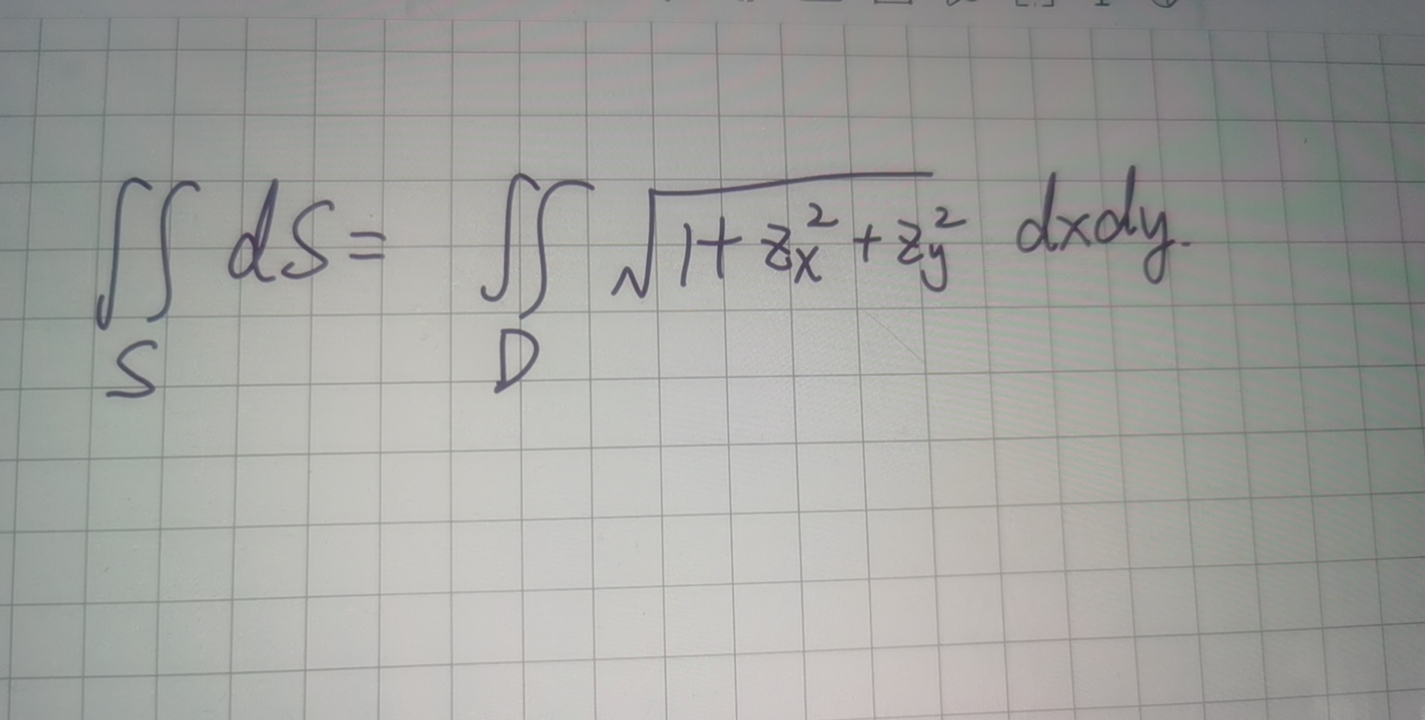 ∬_S dS = ∬_D √(1 + z_x^2 + z_y^2) dxdy.